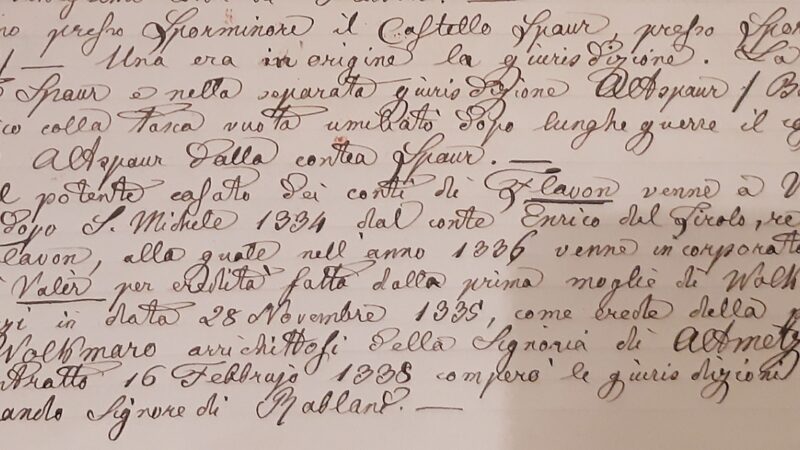 no presso Sporminore il Castello Spaur, presso Spor
— Una era in origine la giurisdizione. La
Spaur e nella separata giurisdizione Altspaur / B
ico colla tasca vuota umiliato dopo lunghe guerre il c
Altspaur dalla contea Spaur. —
l potente casato dei conti di Flavon venne à V
dopo S. Michele 1334 dal conte Enrico del Tirolo, re
lavon, alla quale nell'anno 1336 venne incorporato
i Valèr per eredità fatta dalla prima moglie di Volk
ni in data 28 Novembre 1335, come erede della
Volkmaro arrichittosi della Signoria di Altmetz
ntratto 16 Febbrajo 1338 comperò le giurisdizioni
ando Signore di Rabland. —